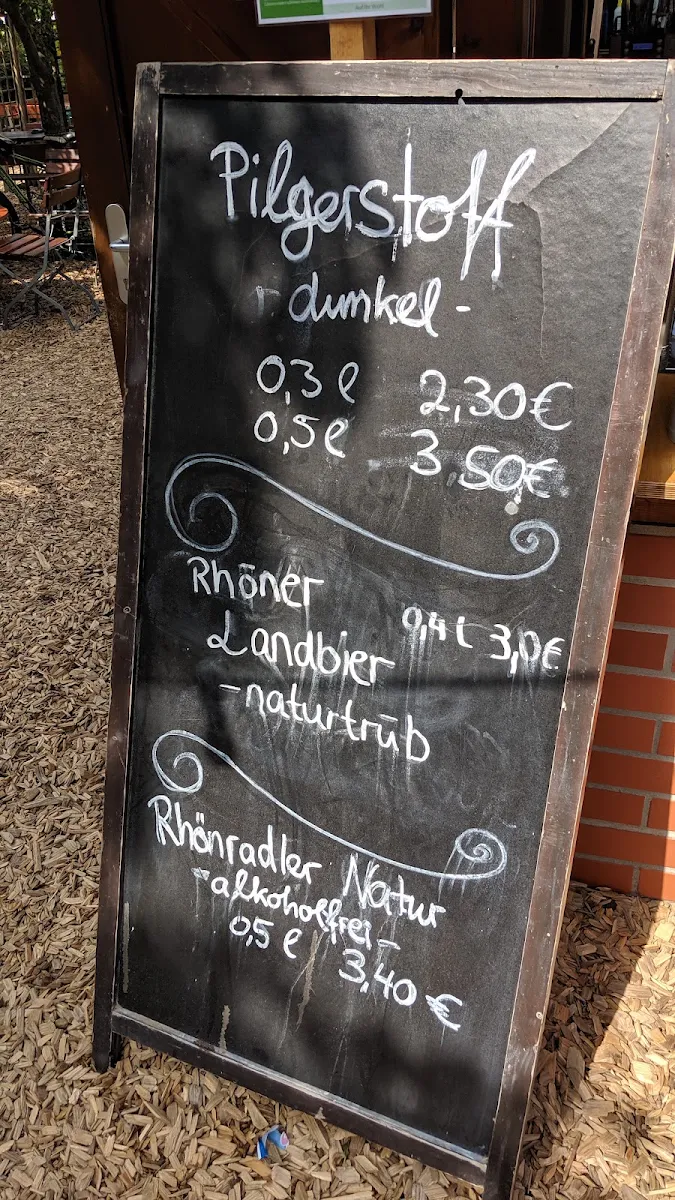 Pilgerstoff
- dunkel -
0,3 l 2,30€
0,5 l 3,50€
Rhöner
Landbier 0,4 l 3,0€
- naturtrüb
Rhönradler Natur
- alkoholfrei -
0,5 l 3,40 €